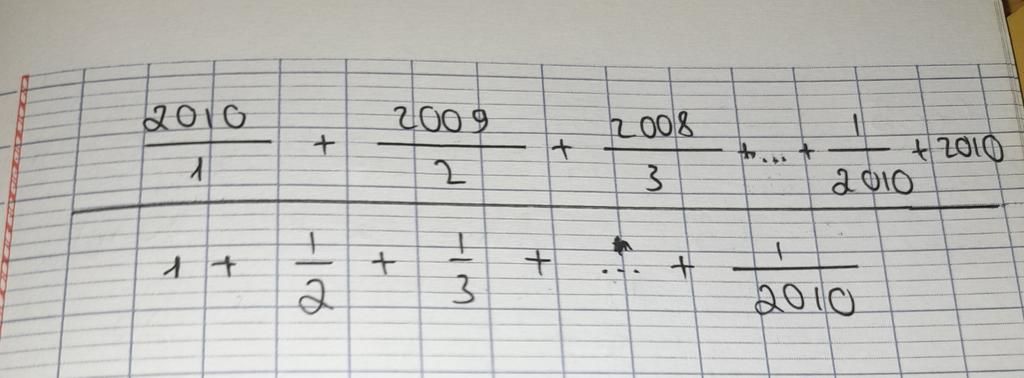 2010/1 + 2009/2 + 2008/3 + ... + 1/2010 + 2010
1 + 1/2 + 1/3 + ... + 1/2010